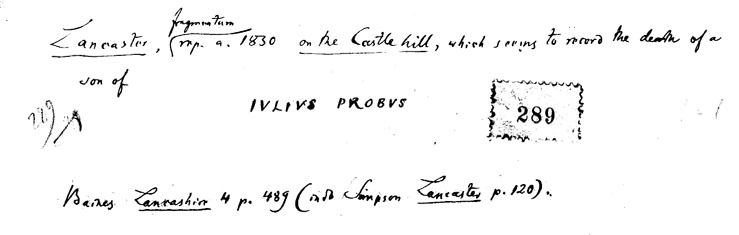 fragmentum
Lancaster, rep. a. 1830 on the Castle hill, which seems to record the death of a
son of
IVLIVS PROBVS
289
289
Baines Lancashire 4 p. 489 (inde Simpson Lancaster p. 120).